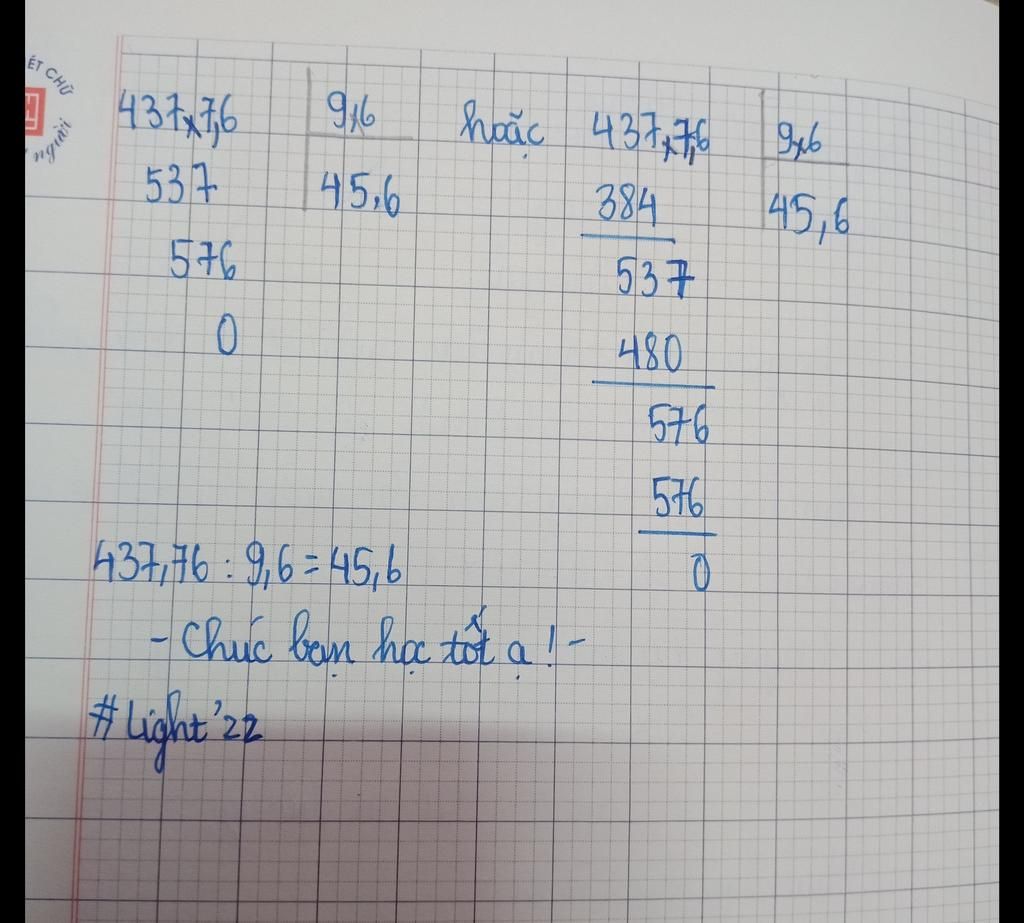 ÉT CHỮ
người
437,7,6 9,6 hoặc 437,7,6 9,6
537 45,6 384 45,6
576 537
0 480
576
576
0
437,76 : 9,6 = 45,6
- Chúc bạn học tốt ạ! -
#Light'22